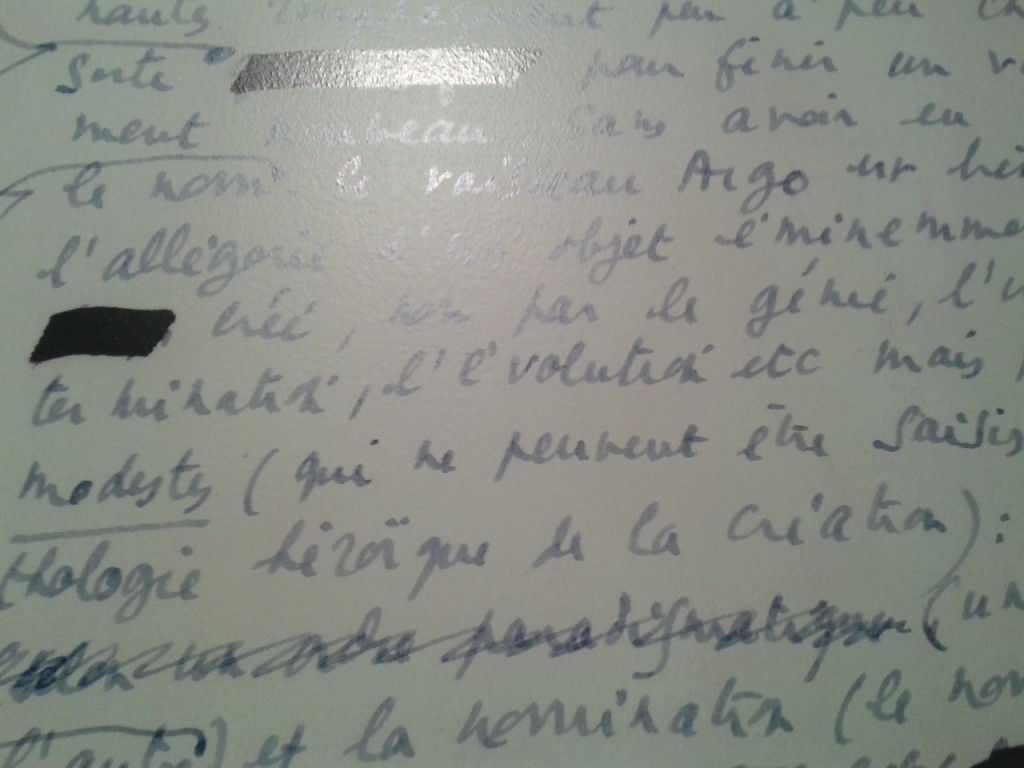 hauts peu à peu
Sorte pour finir un
ment nouveau sans avoir eu
le nom le vaisseau Argo
l'allégorie d'un objet éminemme
créé, non par le génie, l'
termination, l'évolution etc mais
modestes (qui ne peuvent être saisis
thologie héroïque de la création) :
paradigmatique (un
l'autre) et la nomination (le nom